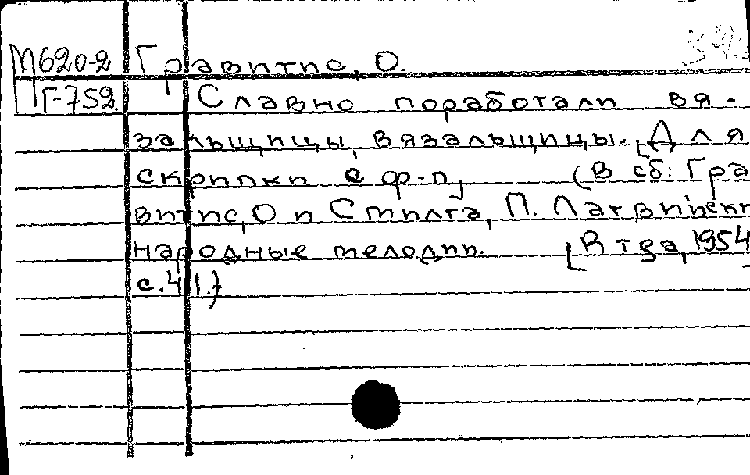 М620-2 Гравитис, О.
Г-752 Славно поработали вя-
зальщицы, вязальщицы. [Для
скрипки с ф-п]. (В сб: Гра
витис, О и Стилта, П. Латвийск
народные мелодии. [В тва, 1954
с.41.)